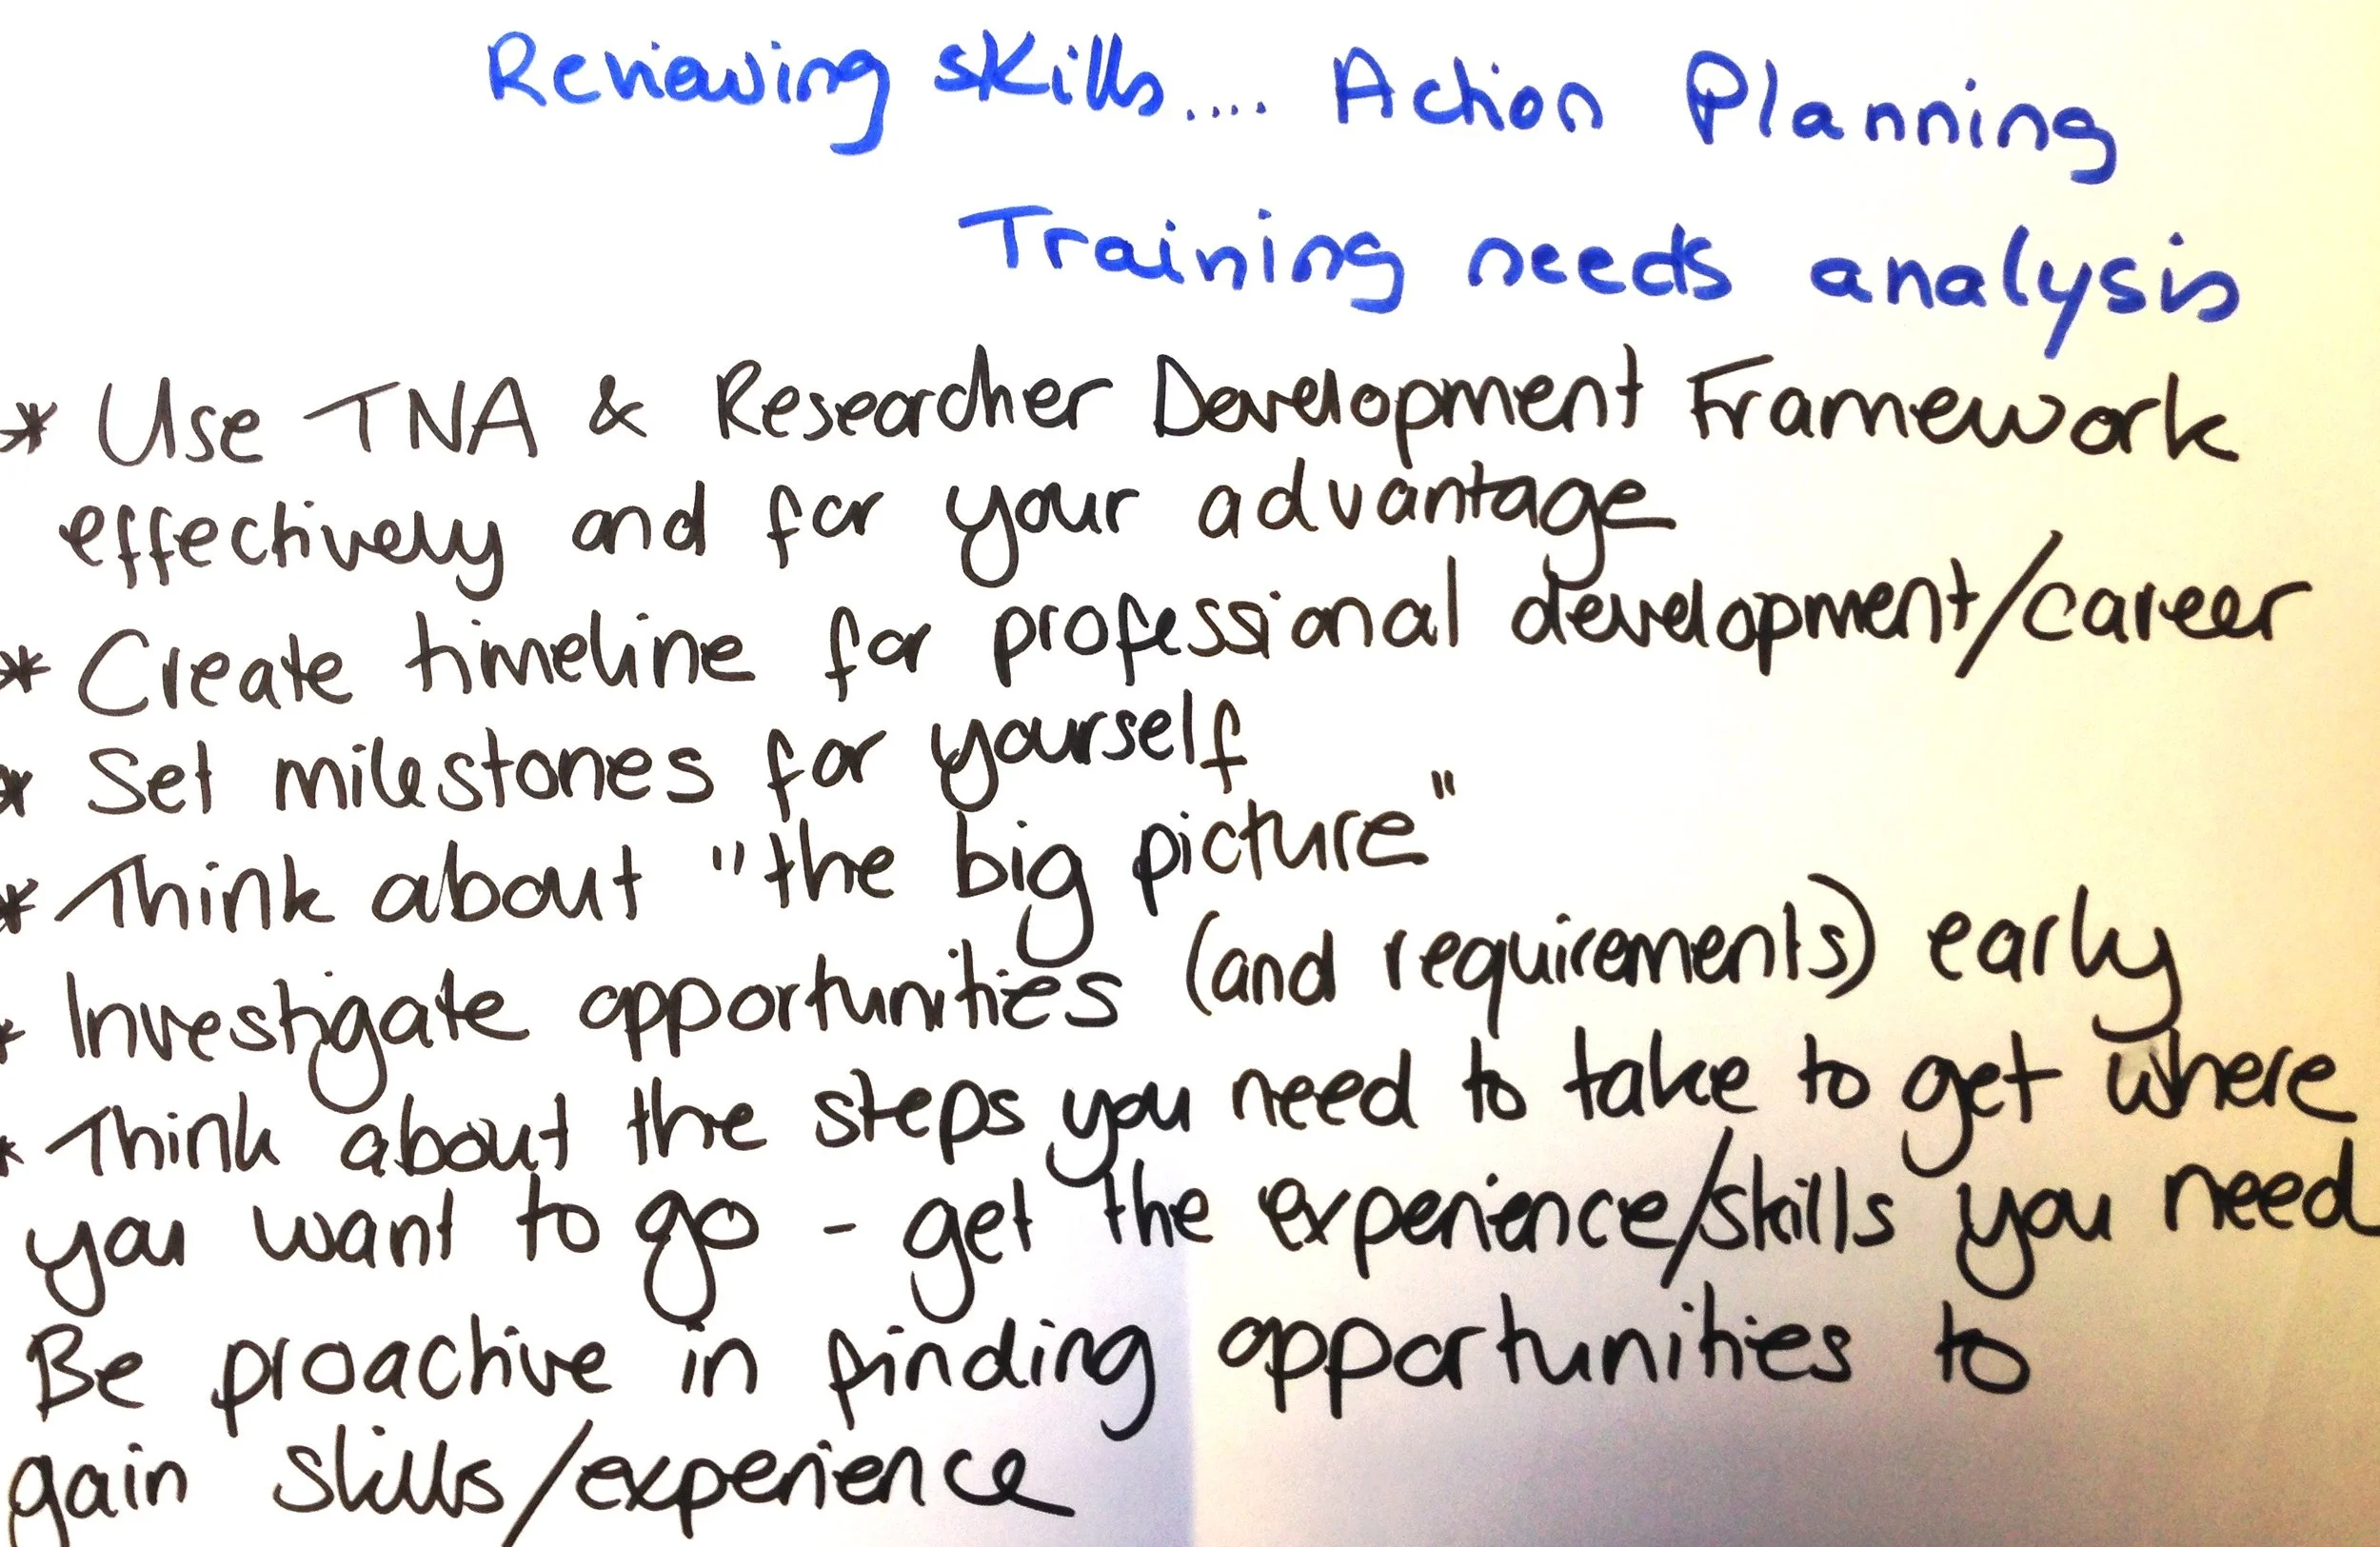 Reviewing skills.... Action Planning
Training needs analysis
* Use TNA & Researcher Development Framework
effectively and for your advantage
* Create timeline for professional development/career
* Set milestones for yourself
* Think about "the big picture"
* Investigate opportunities (and requirements) early
* Think about the steps you need to take to get where
you want to go - get the experience/skills you need
Be proactive in finding opportunities to
gain skills/experience